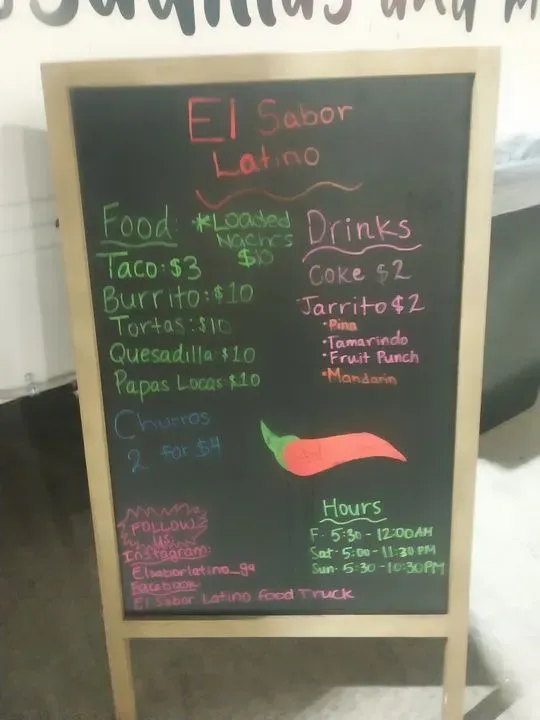 and
El Sabor
Latino
Food
*Loaded
Nachos
$10
Taco: $3
Burrito: $10
Tortas: $10
Quesadilla $10
Papas Locas $10
Churros
2 for $4
Drinks
Coke $2
Jarrito $2
• Pina
• Tamarindo
• Fruit Punch
• Mandarin
Hours
F. 5:30 - 12:00AM
Sat. 5:00 - 11:30 PM
Sun. 5:30 - 10:30PM
FOLLOW
US
Instagram:
Elsaborlatino_ga
Facebook
El Sabor Latino Food Truck